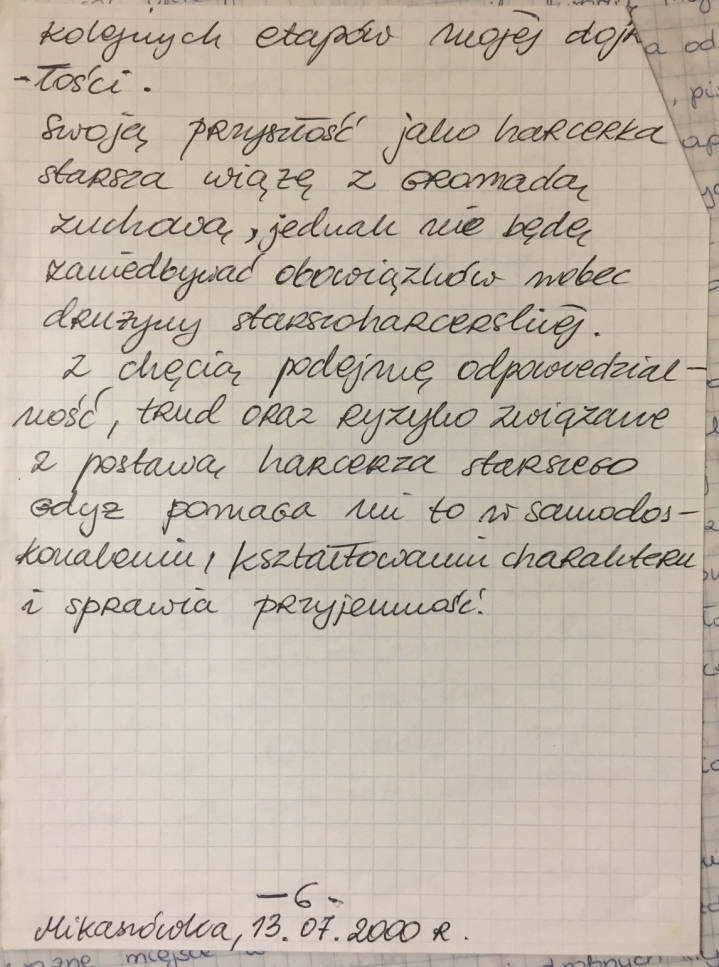 kolejnych etapów mojej dojr
-łości.
Swoją przyszłość jako harcerka
starsza wiążę z gromadą
zuchową, jednak nie będę
zaniedbywać obowiązków wobec
drużyny starszoharcerskiej.
Z chęcią podejmę odpowiedzial-
ność, trud oraz ryzyko związane
z postawą harcerza starszego
gdyż pomaga mi to w samodos-
konaleniu, kształtowaniu charakteru
i sprawia przyjemność!
-6-
Mikaszówka, 13.07.2000 R.
miejsce w